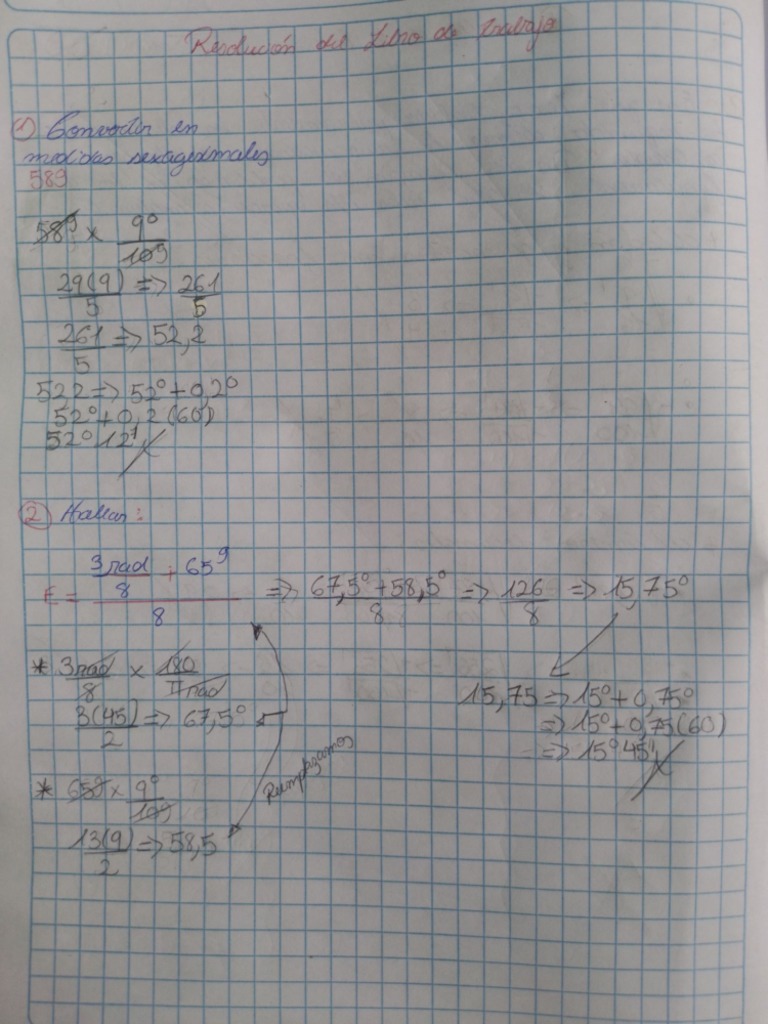 Resolución del Libro de trabajo
① Convertir en
medidas sexagesimales
58ᵍ
58ᵍ × 9° / 10ᵍ
29(9) / 5 => 261 / 5
261 / 5 => 52,2
52,2 => 52° + 0,2°
52° + 0,2 (60)
52° 12'
② Hallar :
E = (3 rad / 8 + 65ᵍ) / 8 => (67,5° + 58,5°) / 8 => 126 / 8 => 15,75°
* 3 rad / 8 × 180 / π rad
3(45) / 2 => 67,5°
15,75 => 15° + 0,75°
=> 15° + 0,75 (60)
=> 15° 45'
Reemplazamos
* 65ᵍ × 9° / 10ᵍ
13(9) / 2 => 58,5